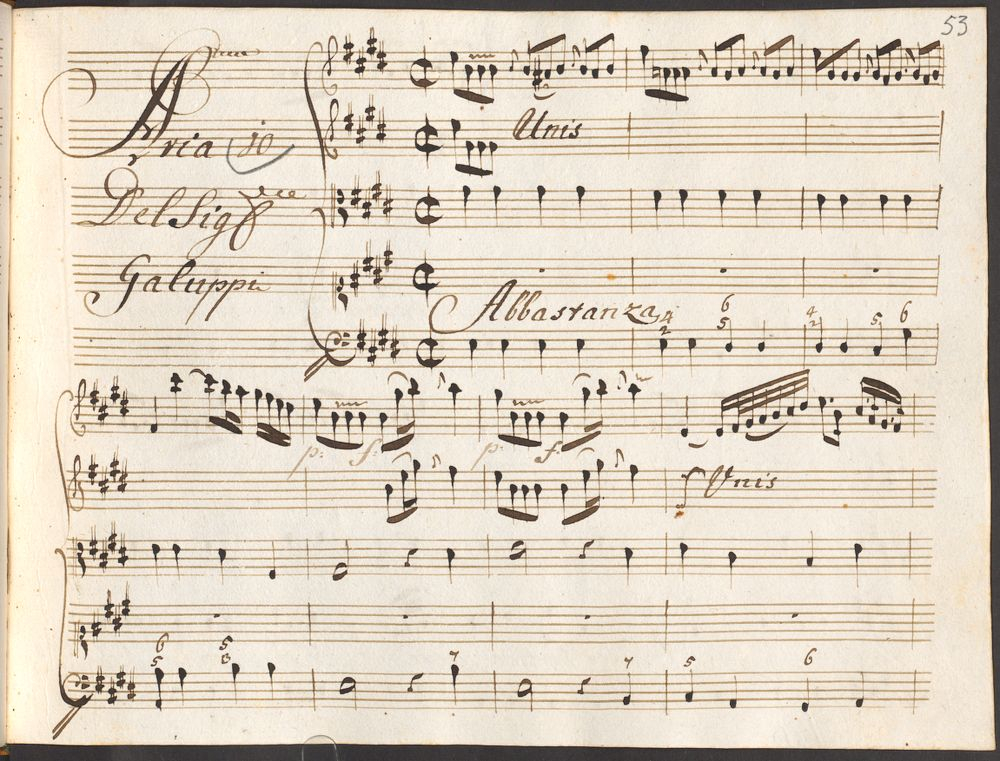 53
Aria 10
Unis
Del Sig.re
Galuppi
Abbastanza
4 6 4 5 6
2 5 2
p: f: p: f:
Unis
6 5 7 7 5 6
5 3